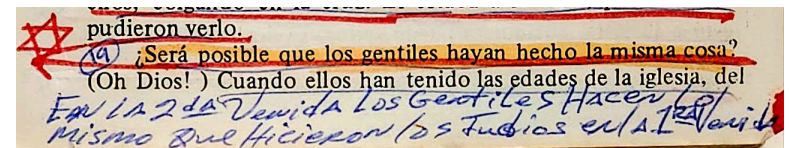 pudieron verlo.
19 ¿Será posible que los gentiles hayan hecho la misma cosa?
(Oh Dios! ) Cuando ellos han tenido las edades de la iglesia, del
EN LA 2da Venida Los Gentiles Hacen Lo
mismo que Hicieron los Judios en LA 1RA Venida